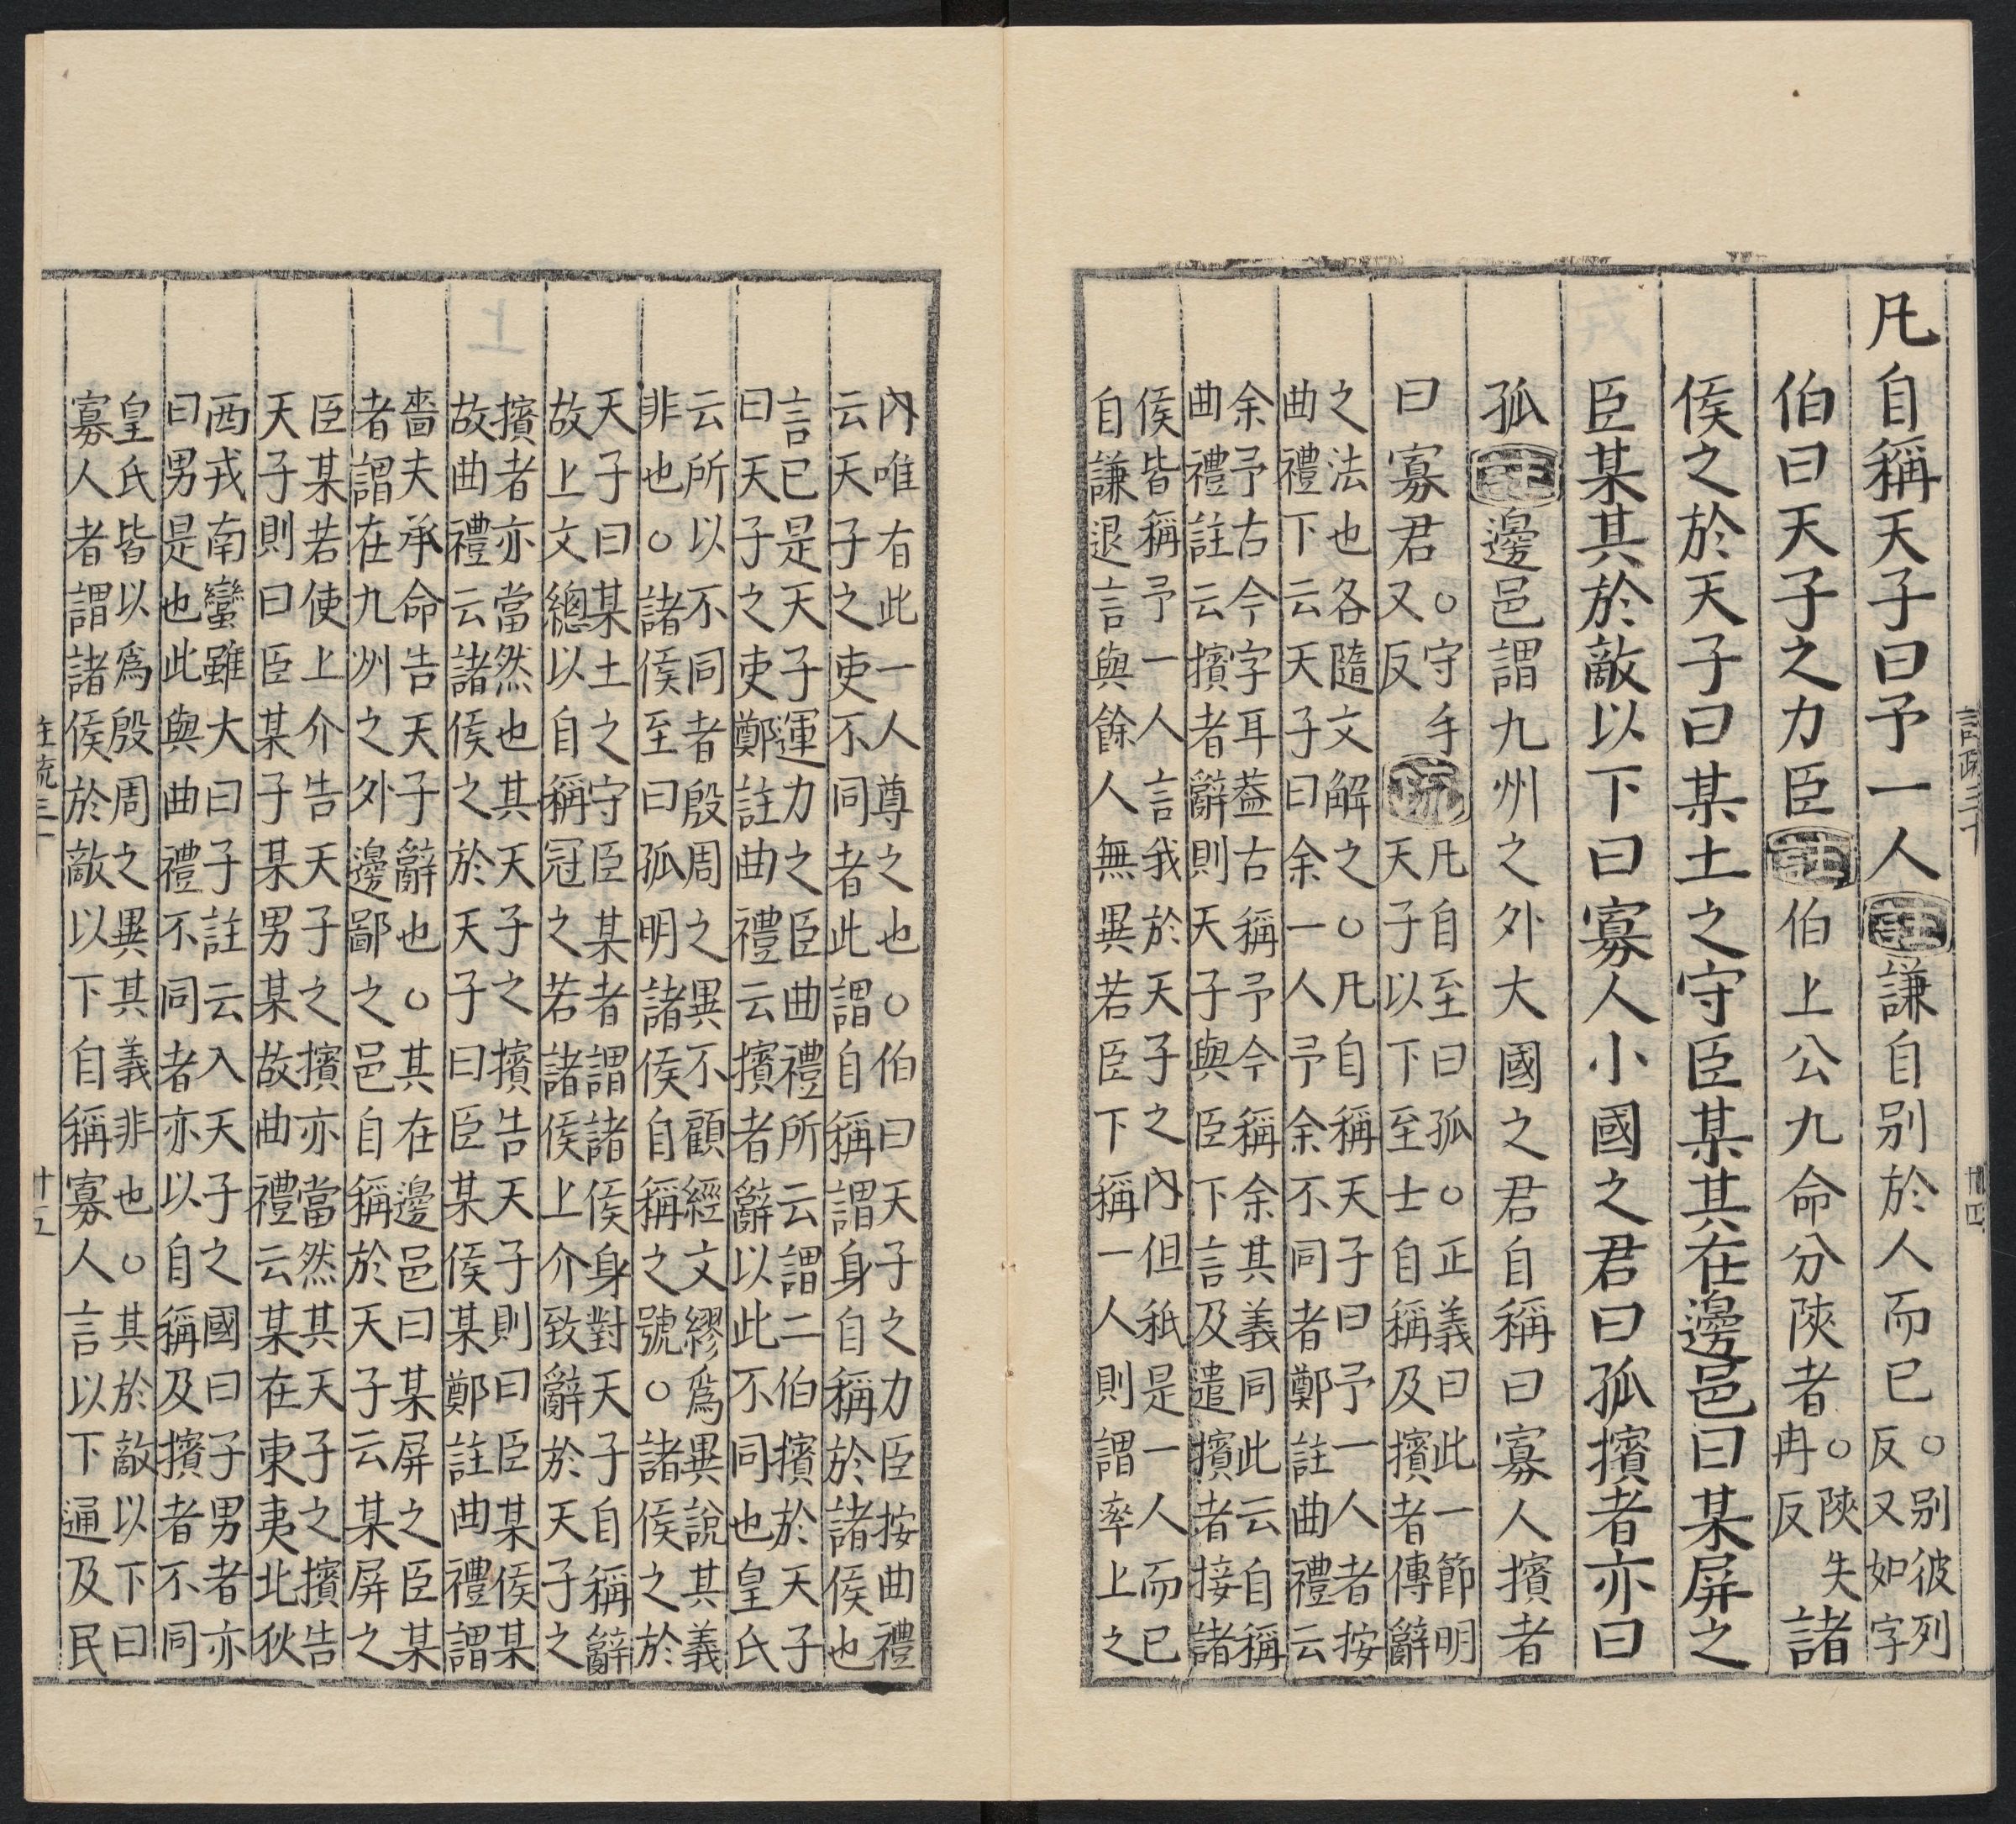 凡自稱天子曰予一人註謙自别於人而已○别彼列
反又如字
伯曰天子之力臣註伯上公九命分陜者○陜失
冉反諸
侯之於天子曰某土之守臣某其在邊邑曰某屏之
臣某其於敵以下曰寡人小國之君曰孤擯者亦曰
孤註邊邑謂九州之外大國之君自稱曰寡人擯者
曰寡君○守手
又反疏凡自至曰孤○正義曰此一節明
天子以下至士自稱及擯者傳辭
之法也各隨文解之○凡自稱天子曰予一人者按
曲禮下云天子曰余一人予余不同者鄭註曲禮云
余予古今字耳蓋古稱予今稱余其義同此云自稱
曲禮註云擯者辭則天子與臣下言及遣擯者接諸
侯皆稱予一人言我於天子之內但秖是一人而已
自謙退言與餘人無異若臣下稱一人則謂率土之
內唯有此一人尊之也○伯曰天子之力臣按曲禮
云天子之吏不同者此謂自稱謂身自稱於諸侯也
言已是天子運力之臣曲禮所云謂二伯擯於天子
曰天子之吏鄭註曲禮云擯者辭以此不同也皇氏
云所以不同者殷周之異不顧經文繆爲異說其義
非也○諸侯至曰孤明諸侯自稱之號○諸侯之於
天子曰某土之守臣某者謂諸侯身對天子自稱辭
故上文總以自稱冠之若諸侯上介致辭於天子之
擯者亦當然也其天子之擯告天子則曰臣某侯某
故曲禮云諸侯之於天子曰臣某侯某鄭註曲禮謂
嗇夫承命告天子辭也○其在邊邑曰某屏之臣某
者謂在九州之外邊鄙之邑自稱於天子云某屏之
臣某若使上介告天子之擯亦當然其天子之擯告
天子則曰臣某子某男某故曲禮云某在東夷北狄
西戎南蠻雖大曰子註云入天子之國曰子男者亦
曰男是也此與曲禮不同者亦以自稱及擯者不同
皇氏皆以爲殷周之異其義非也○其於敵以下曰
寡人者謂諸侯於敵以下自稱寡人言以下通及民